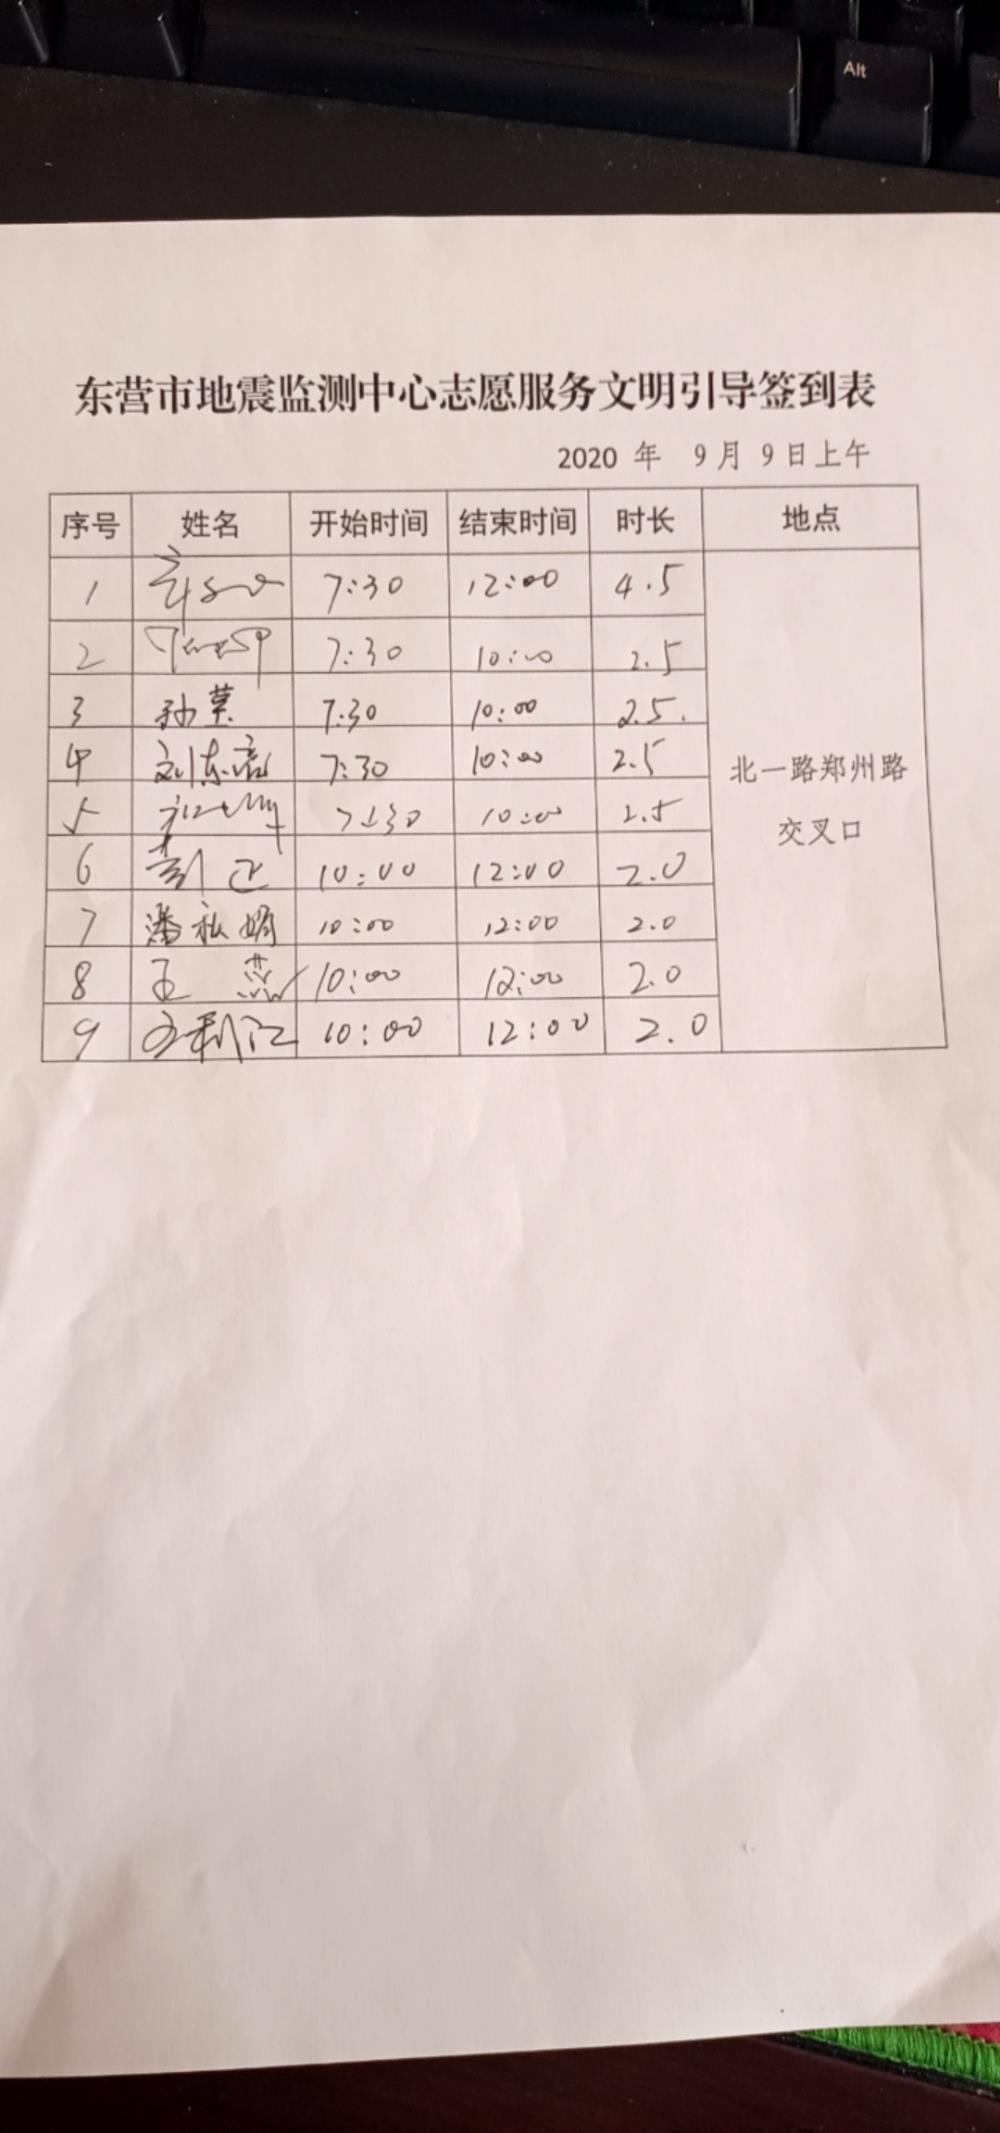 Alt
东营市地震监测中心志愿服务文明引导签到表
2020 年 9月 9日上午
序号 姓名 开始时间 结束时间 时长 地点
1 7:30 12:00 4.5
2 7:30 10:00 2.5
3 孙 7:30 10:00 2.5.
4 刘东 7:30 10:00 2.5
北一路郑州路
5 7:30 10:00 2.5
交叉口
6 10:00 12:00 2.0
7 潘 娟 10:00 12:00 2.0
8 王 燕 10:00 12:00 2.0
9 10:00 12:00 2.0